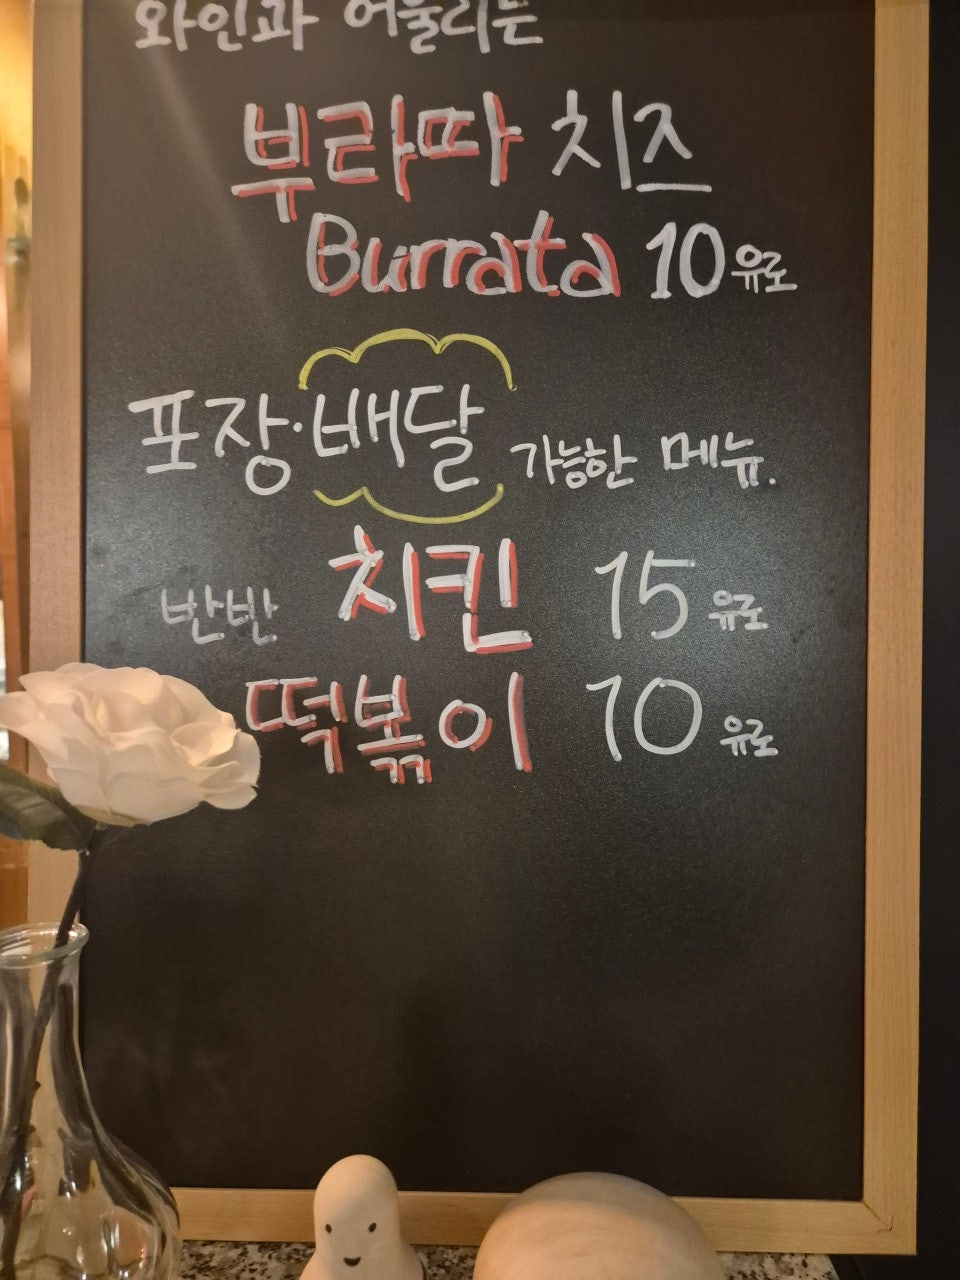 와인과 어울리는
부라따 치즈
Burrata 10유로
포장·배달 가능한 메뉴.
반반 치킨 15유로
떡볶이 10유로